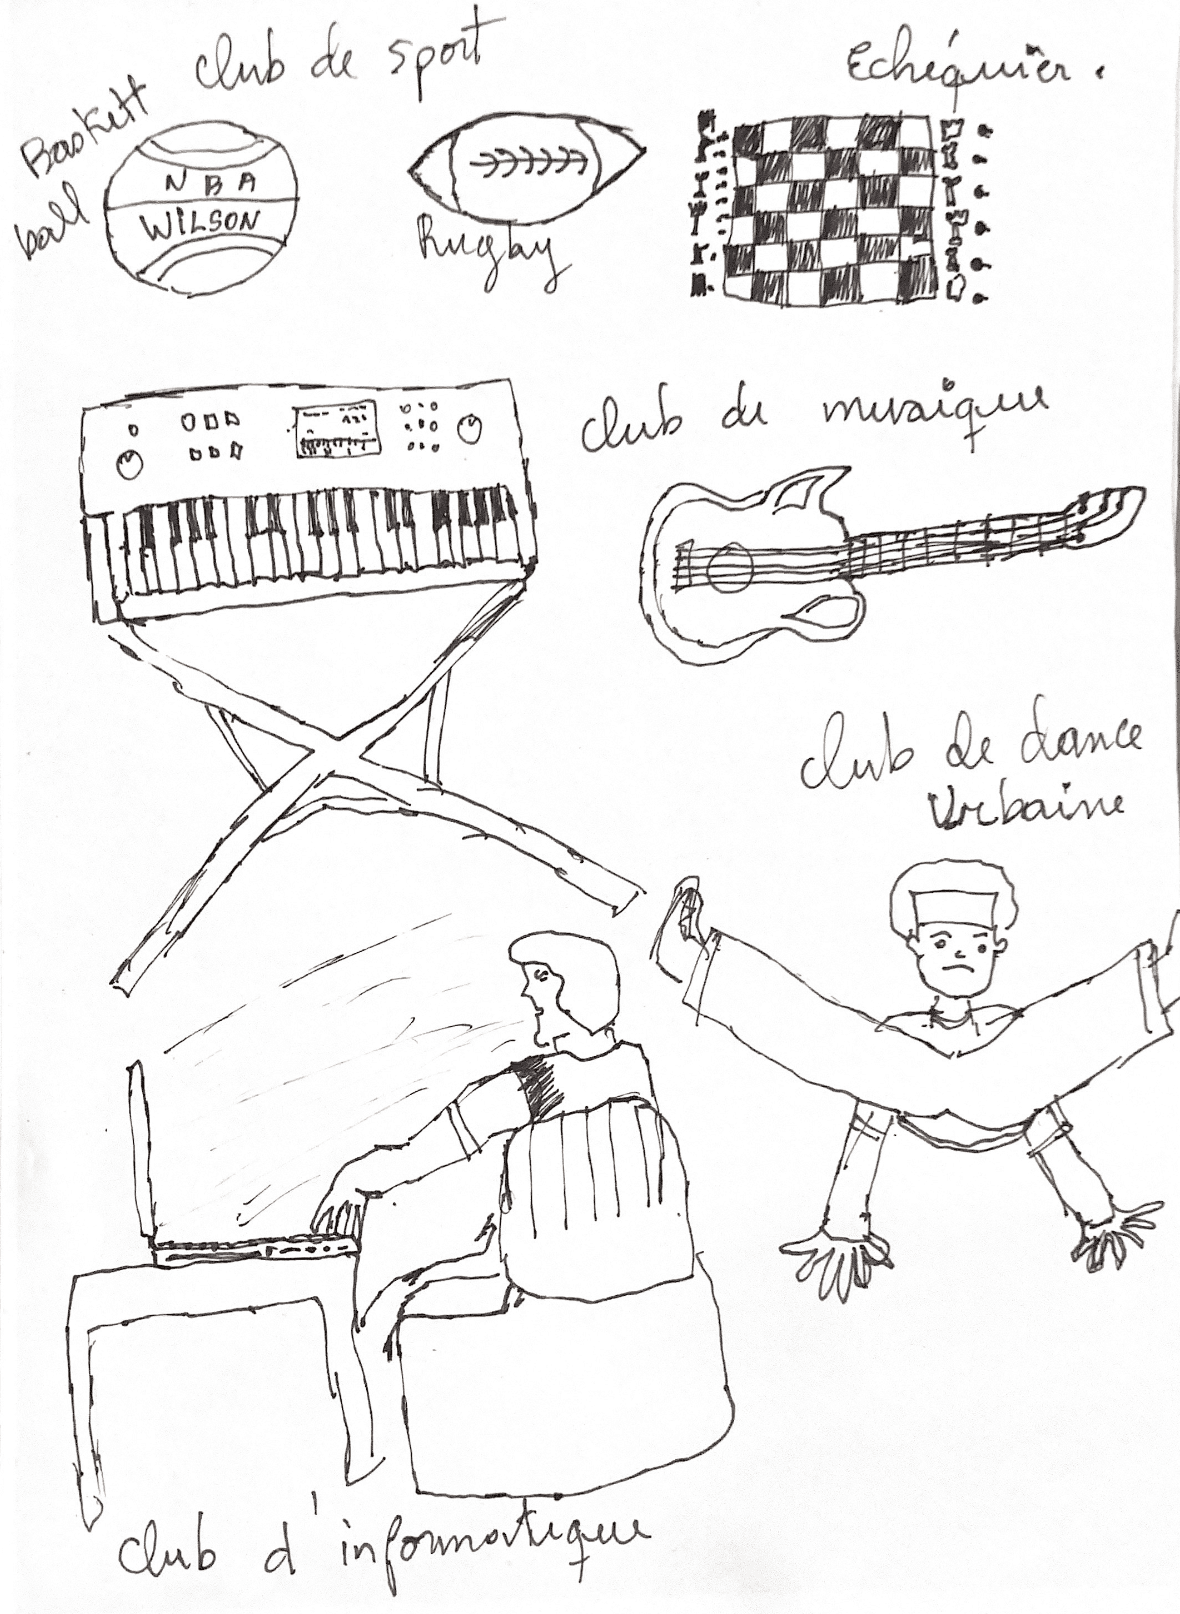 club de sport
Echéquier.
Baskett
ball
NBA
WILSON
Rugby
club de musique
club de dance
Urbaine
club d'informatique